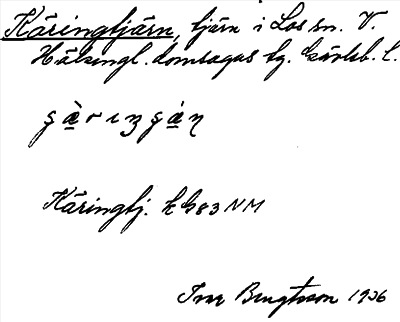 Käringtjärn, tjärn i Los sn. V.
Hälsingl. domsagas tg. Gävleb. l.
Käringtj. k G83 NM
Ivar Bengtsson 1936